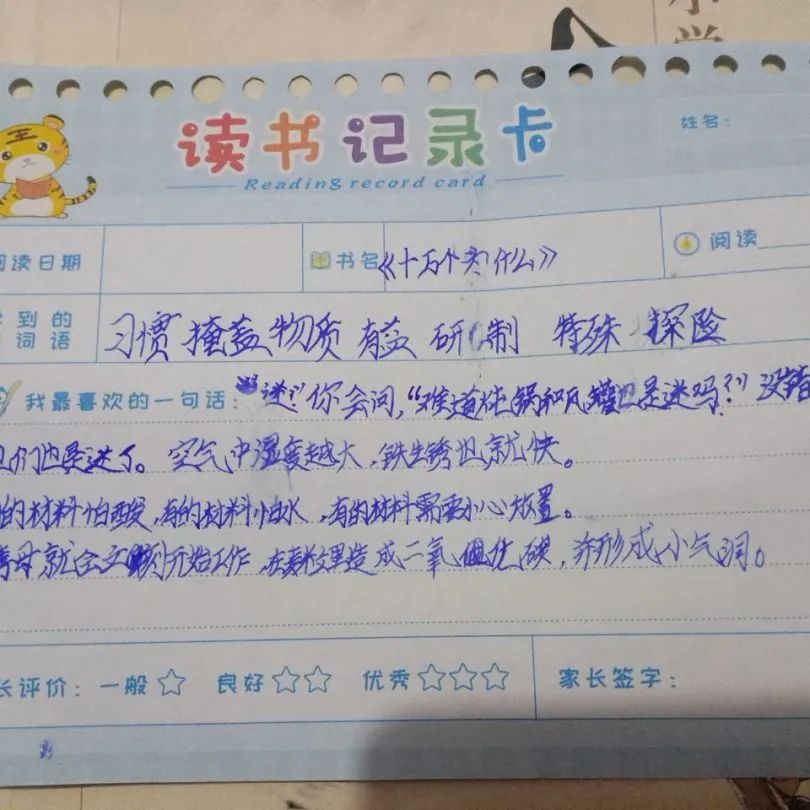 小学
读书记录卡
姓名：
Reading record card
阅读日期 书名 《十万个为什么》 阅读
到的 习惯 掩盖 物质 有益 研制 特殊 探险
词语
我最喜欢的一句话： 谜” 你会问，“难道锅和瓦罐也是谜吗？” 没错
们也是谜了。空气中湿度越大，铁生锈也就快。
的材料怕酸，有的材料怕水，有的材料需要小心放置。
酵母就会立刻开始工作，在麦粉里造成二氧化碳，并形成小气洞。
长评价： 一般 良好 优秀 家长签字：